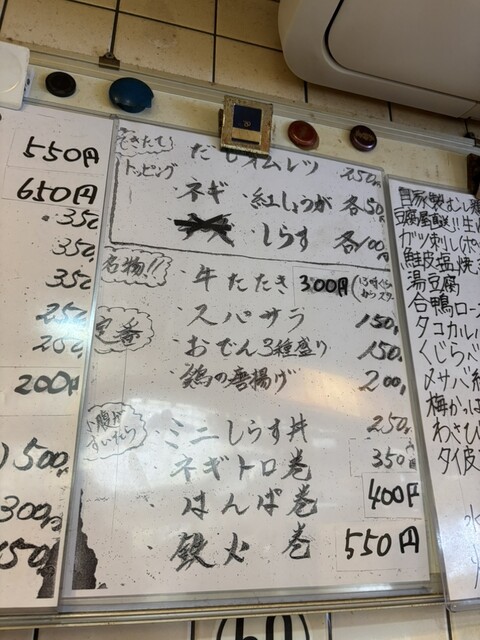 550円
650円
350
350
350
250
250
200円
500円
300円
150
できたて!
だしオムレツ 250円
トッピング
ネギ 紅しょうが 各50円
しらす 各100円
名物!!
牛たたき 300円
定番
スパサラ 150円
おでん3種盛り 150円
鶏の唐揚げ 200円
小腹が
すいたら
ミニしらす丼 250円
ネギトロ巻 350円
はんぱ巻 400円
鉄火巻 550円
自家製むし鶏
豆腐屋直送!!生
ガツ刺し(ポ
鮭皮塩焼き
湯豆腐
合鴨ロース
タコカルパ
くじらベ
〆サバ
梅かっぱ
わさび
タイ皮